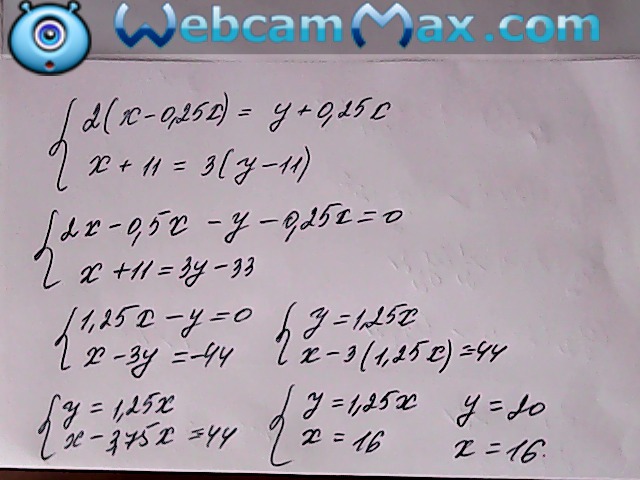 WebcamMax.com
2(x-0,25x) = y+0,25x
x + 11 = 3(y-11)
2x-0,5x - y - 0,25x=0
x + 11 = 3y - 33
1,25x - y = 0
x - 3y = -44
y = 1,25x
x - 3(1,25x) = -44
y = 1,25x
x - 3,75x = -44
y = 1,25x
x = 16
y = 20
x = 16.